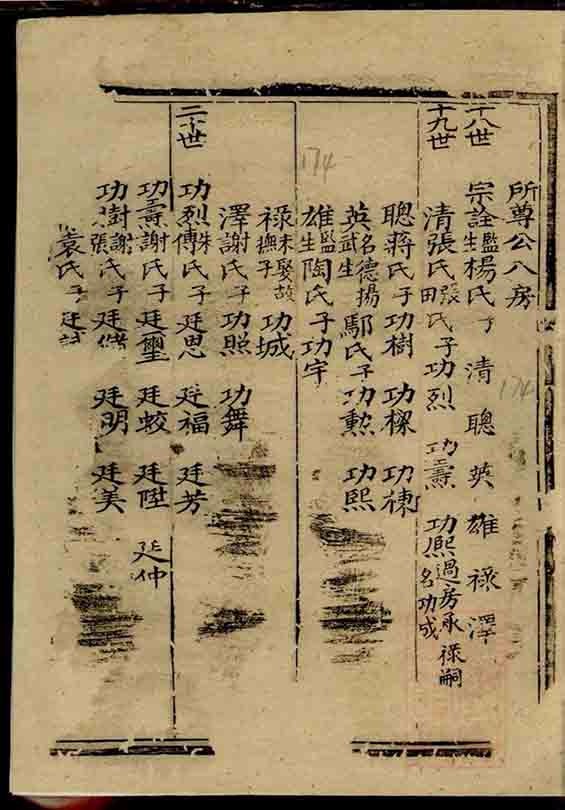 所尊公八房
十八世 宗詮監生楊氏子 清 聰 英 雄 祿 澤
十九世 清張氏張田氏子功烈 功壽 功熈過房承祿嗣名功成
聰蔣氏子功樹 功樑 功棟
英名德揚武生鄢氏子功勲 功熙
雄監生陶氏子功宇
祿未娶故撫子功城
澤謝氏子功照 功舞
二十世 功烈朱傳氏子廷思 廷福 廷芳
功壽謝氏子廷璽 廷蛟 廷陞 廷仲
功樹謝張氏子廷 廷明 廷美
袁氏子廷
174
174